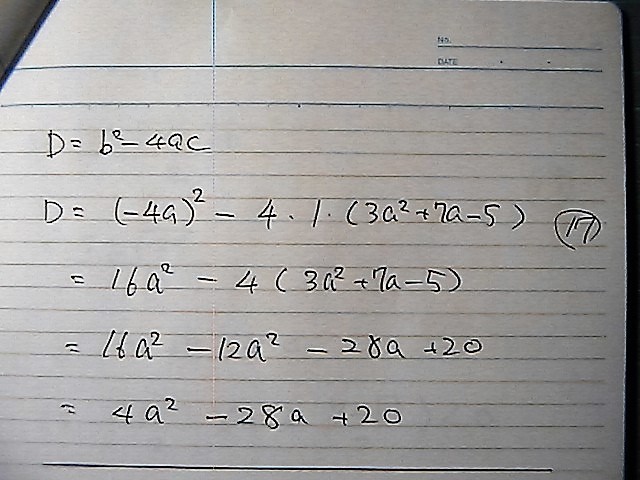 No.
DATE
D = b² - 4ac
D = (-4a)² - 4 · 1 · (3a² + 7a - 5) 17
= 16a² - 4 (3a² + 7a - 5)
= 16a² - 12a² - 28a + 20
= 4a² - 28a + 20